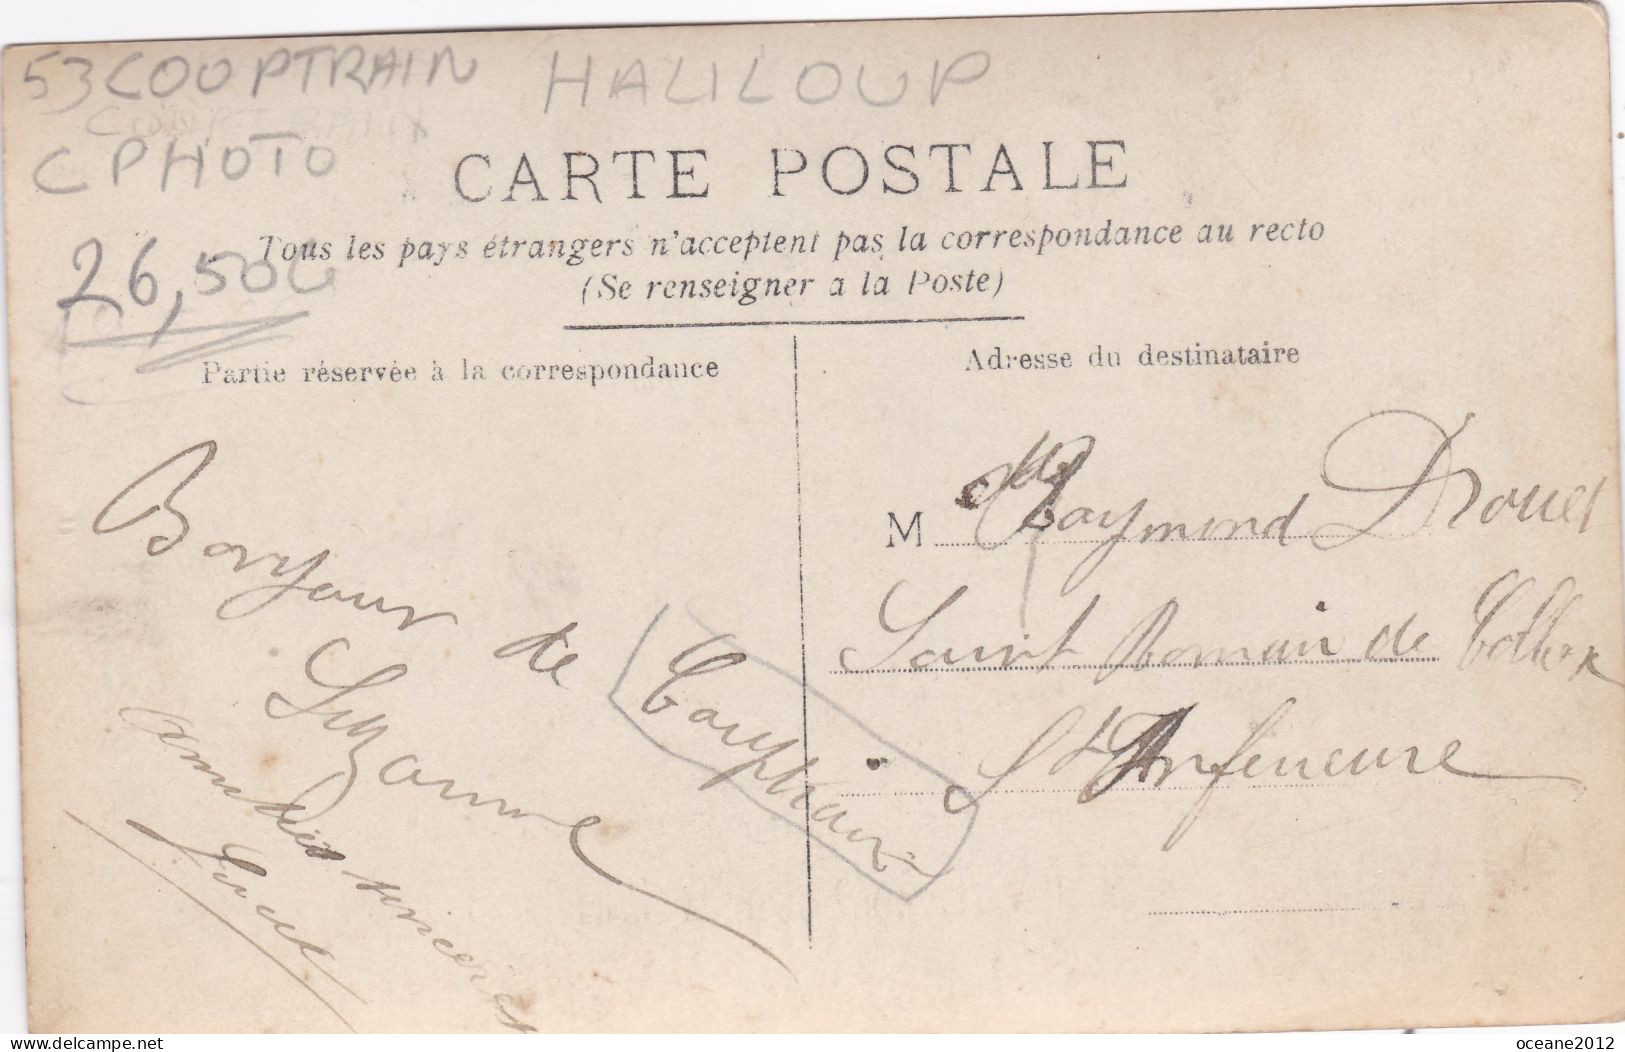 53 COUPTRAIN HALILOUP
COUPTRAIN
C PHOTO
CARTE POSTALE
26,50
Tous les pays étrangers n'acceptent pas la correspondance au recto
(Se renseigner a la Poste)
Partie réservée à la correspondance
Adresse du destinataire
Bonjour de Couptrain
Suzanne
Amitiés sincères
M Raymond Drouet
Saint Romain de Colbosc
Inférieure
oceane2012
delcampe.net